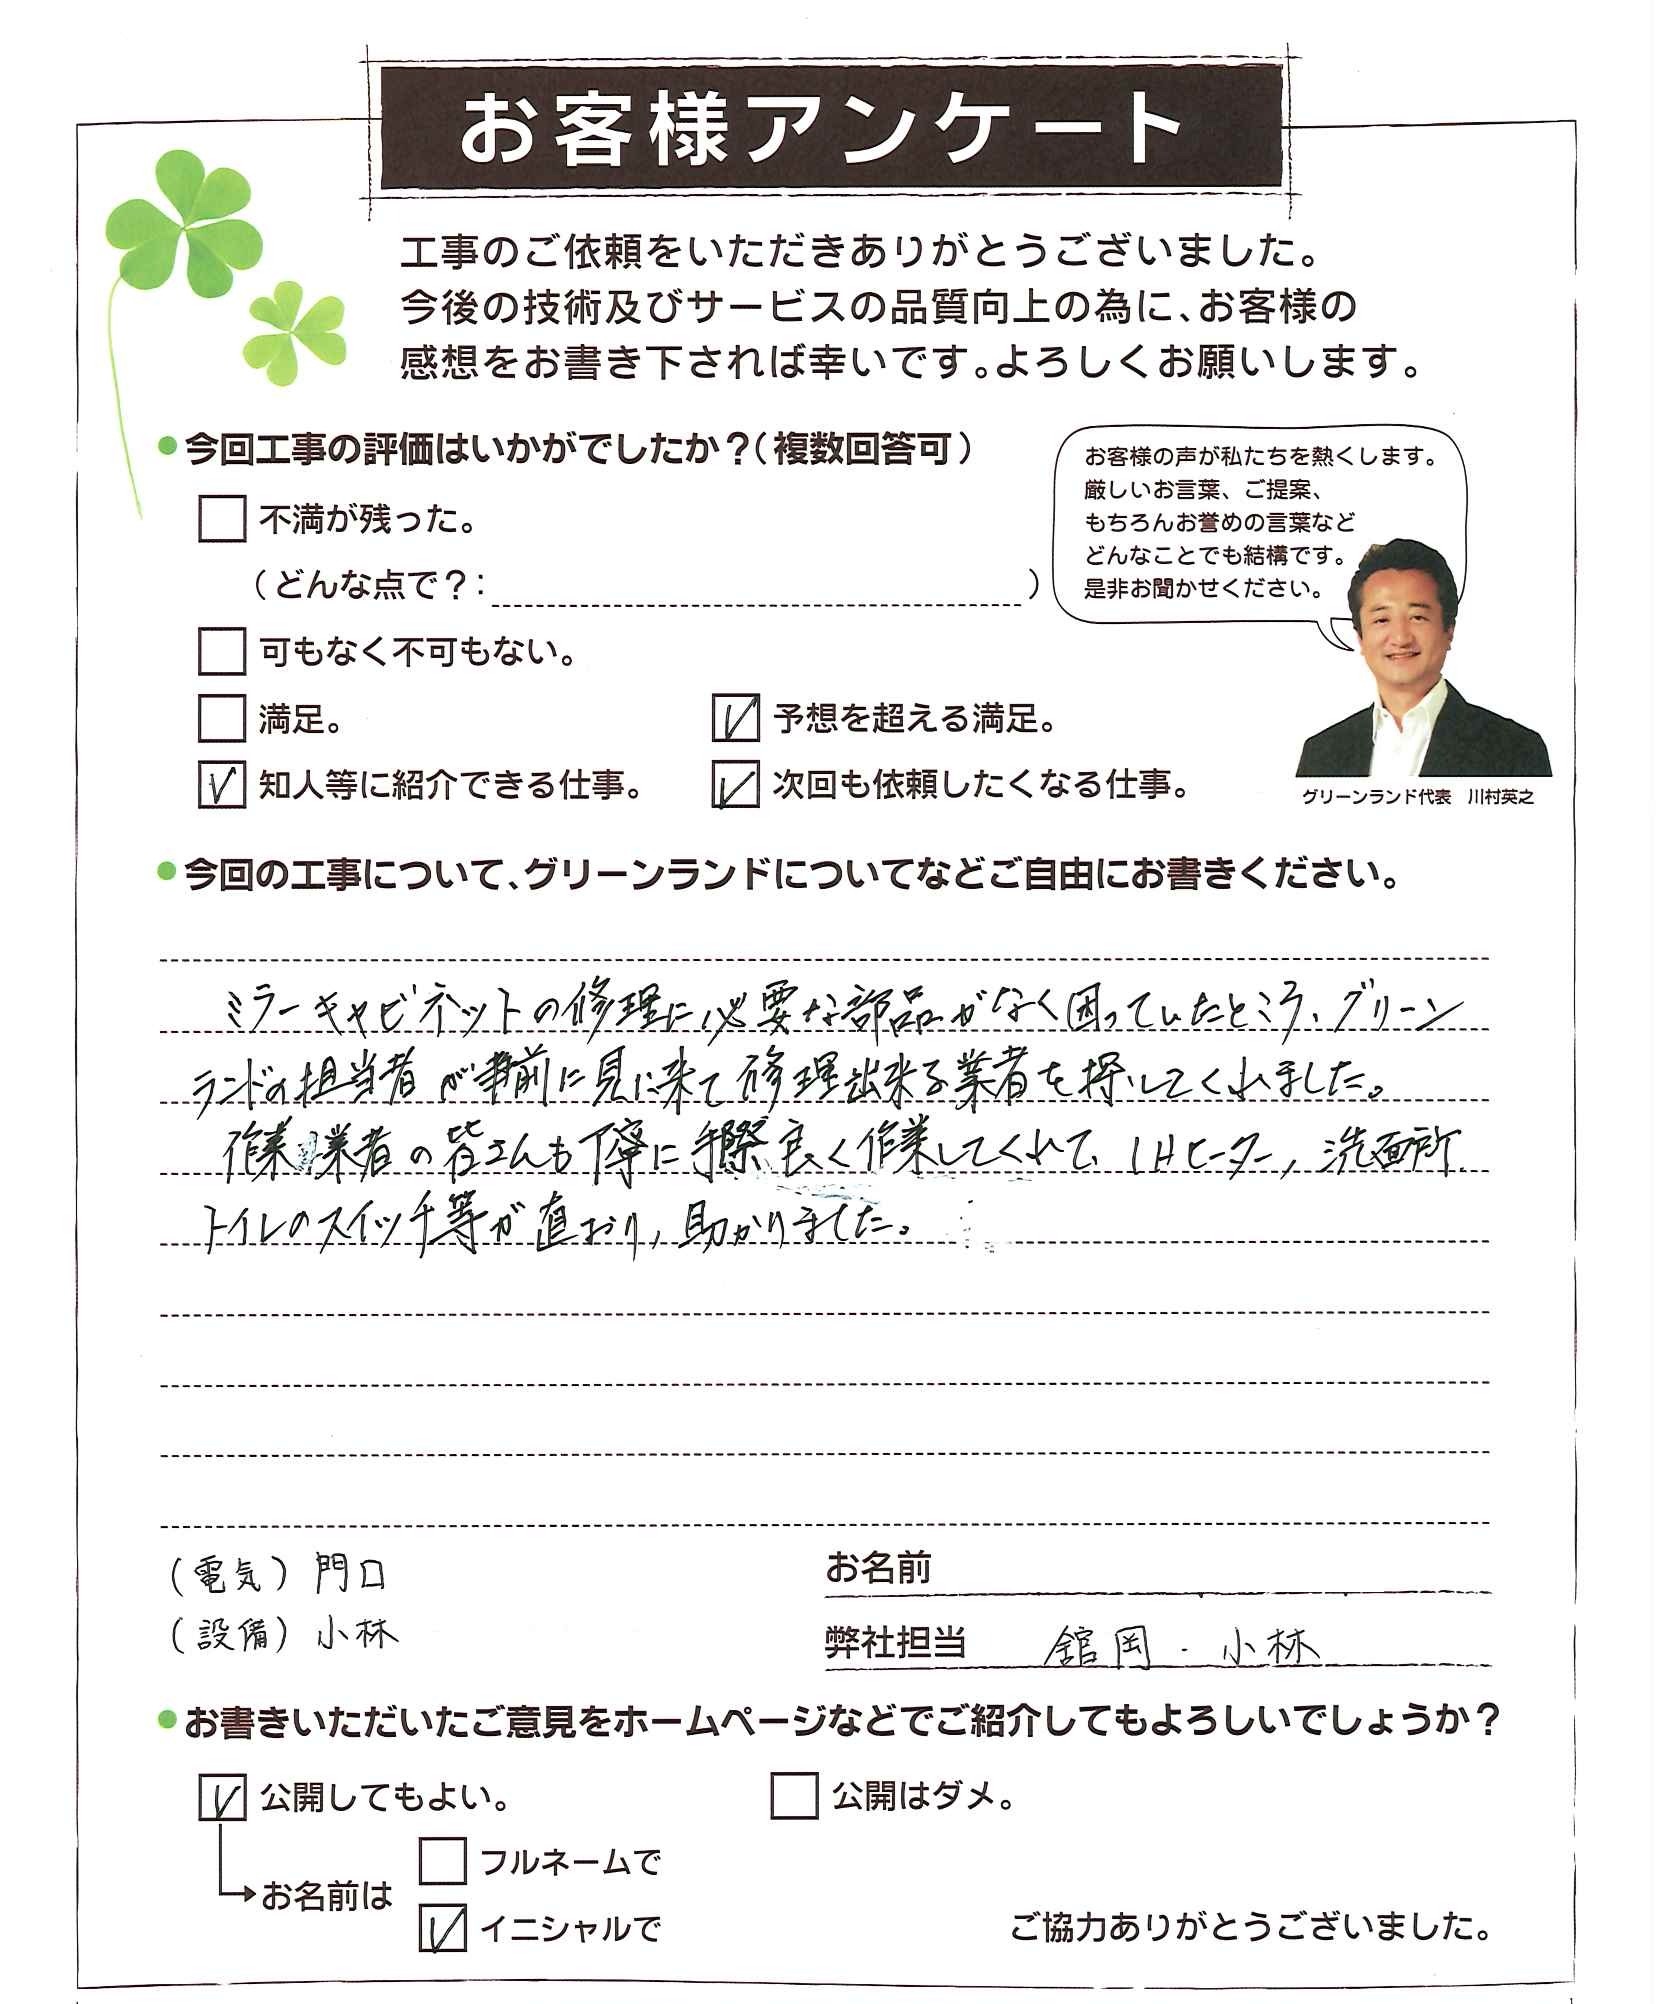 お客様アンケート
工事のご依頼をいただきありがとうございました。
今後の技術及びサービスの品質向上の為に、お客様の
感想をお書き下されば幸いです。よろしくお願いします。
●今回工事の評価はいかがでしたか？（複数回答可）
お客様の声が私たちを熱くします。
厳しいお言葉、ご提案、
もちろんお誉めの言葉など
どんなことでも結構です。
是非お聞かせください。
グリーンランド代表 川村英之
不満が残った。
（どんな点で？： ）
可もなく不可もない。
満足。 予想を超える満足。
知人等に紹介できる仕事。 次回も依頼したくなる仕事。
●今回の工事について、グリーンランドについてなどご自由にお書きください。
ミラーキャビネットの修理に必要な部品がなく困っていたところ、グリーン
ランドの担当者が事前に見に来て修理出来る業者を探してくれました。
作業業者の皆さんも丁寧に手際良く作業してくれて、IHヒーター，洗面所
トイレのスイッチ等が直おり，助かりました。
（電気）門口
（設備）小林
お名前
弊社担当 舘岡・小林
●お書きいただいたご意見をホームページなどでご紹介してもよろしいでしょうか？
公開してもよい。 公開はダメ。
お名前は
フルネームで
イニシャルで
ご協力ありがとうございました。